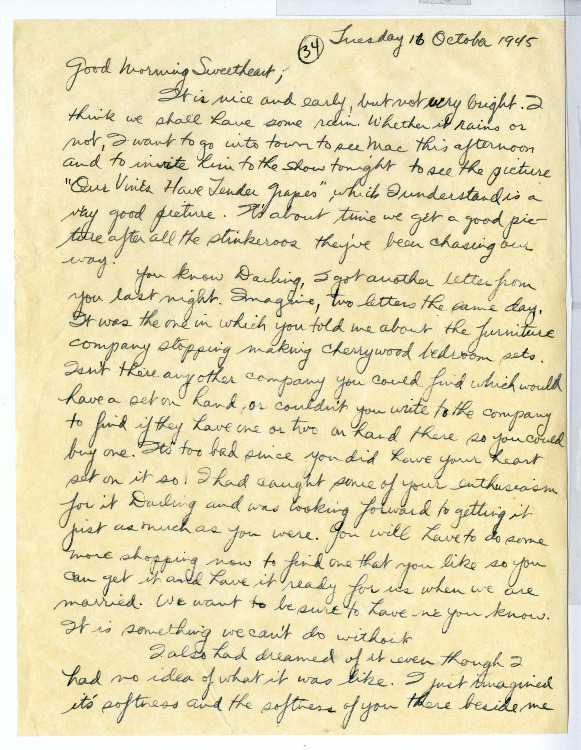 34
Tuesday 16 October 1945
Good Morning Sweetheart,;
It is nice and early, but not very bright. I
think we shall have some rain. Whether it rains or
not, I want to go into town to see Mac this afternoon
and to invite him to the show tonight to see the picture
"Our Vines Have Tender Grapes", which I understand is a
very good picture. It's about time we get a good pic-
ture after all the stinkeroos they've been chasing our
way.
You know Darling, I got another letter from
you last night. Imagine, two letters the same day.
It was the one in which you told me about the furniture
company stopping making cherrywood bedroom sets.
Isn't there any other company you could find which would
have a set on hand, or couldn't you write to the company
to find if they have one or two on hand there so you could
buy one. It's too bad since you did have your heart
set on it so. I had caught some of your enthusiasm
for it Darling and was looking forward to getting it
just as much as you were. You will have to do some
more shopping now to find one that you like so you
can get it and have it ready for us when we are
married. We want to be sure to have one you know.
It is something we can't do without.
I also had dreamed of it even though I
had no idea of what it was like. I just imagined
its' softness and the softness of you there beside me